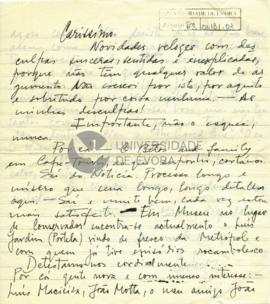 Caríssimo.
Novidades velozes com des
culpas sinceras, sentidas e inexplicadas,
porque não têm qualquer valor de ar
gumento. Não cresceu por isto, por aquilo
e sobretudo por coisa nenhuma. As
minhas desculpas!
Importante, não o esqueci,
nunca.
Por cá, a family
em Cape-Town
Saí do Notícias. Processo longo e
mísero que seria longo, longo detalhar
aqui. Saí e muito bem, cada vez estou
mais satisfeito. Em Museu no lugar
de conservador encontra-se actualmente o Luís
Jardim (Portela) vindo de fresco da Metrópole e
com quem já tive episódios rocambolescos.
Detestamo-nos cordialmente.
Por cá gente nova e com menos interesse:
Luís Macieira, João Motta, o meu amigo João
UNIVERSIDADE
DE ÉVORA